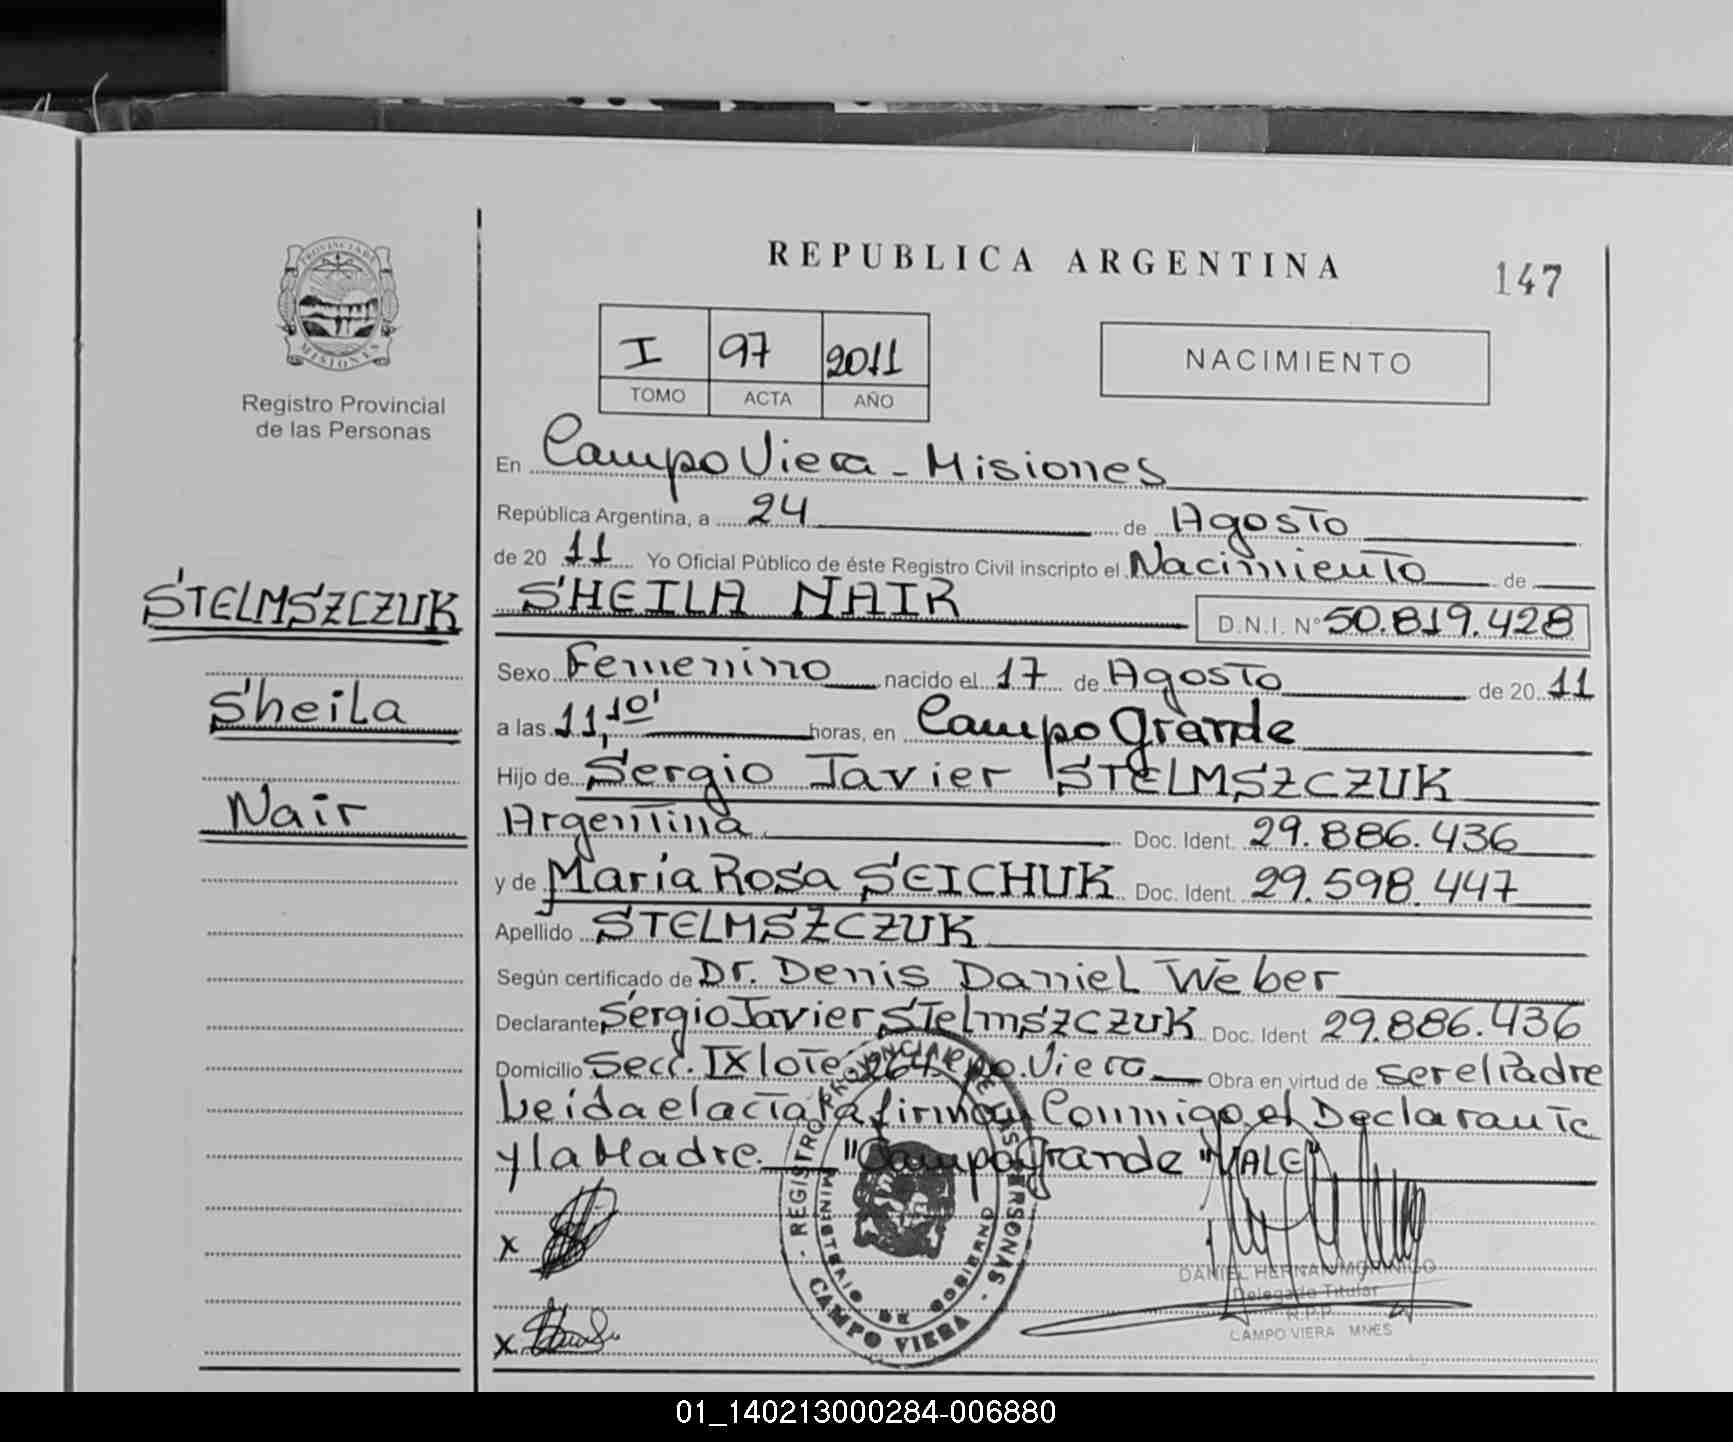 REPUBLICA ARGENTINA
147
PROVINCIA DE
MISIONES
Registro Provincial
de las Personas
I 97 2011
TOMO ACTA AÑO
NACIMIENTO
En Campo Viera - Misiones
República Argentina, a 24 de Agosto
de 20 11 Yo Oficial Público de éste Registro Civil inscripto el Nacimiento de
SHEILA NAIR D.N.I. N° 50.819.428
STELMSZCZUK
Sheila
Nair
Sexo Femenino nacido el 17 de Agosto de 20 11
a las 11,10' horas, en Campo Grande
Hijo de Sergio Javier STELMSZCZUK
Argentina Doc. Ident. 29.886.436
y de María Rosa SEICHUK Doc. Ident. 29.598.447
Apellido STELMSZCZUK
Según certificado de Dr. Denis Daniel Weber
Declarante Sergio Javier STelmSZCZUK Doc. Ident 29.886.436
Domicilio Secc. IX lote 264 Cpo. Viera Obra en virtud de ser el Padre
Leida el acta la firman Conmigo el Declarante
y la Madre. "Campo Grande" VALE
x
x
REGISTRO PROVINCIAL DE LAS PERSONAS
MINISTERIO DE GOBIERNO
CAMPO VIERA
DANIEL HERNAN MORINIGO
Delegado Titular
R.P.P.
CAMPO VIERA MNES
01_140213000284-006880